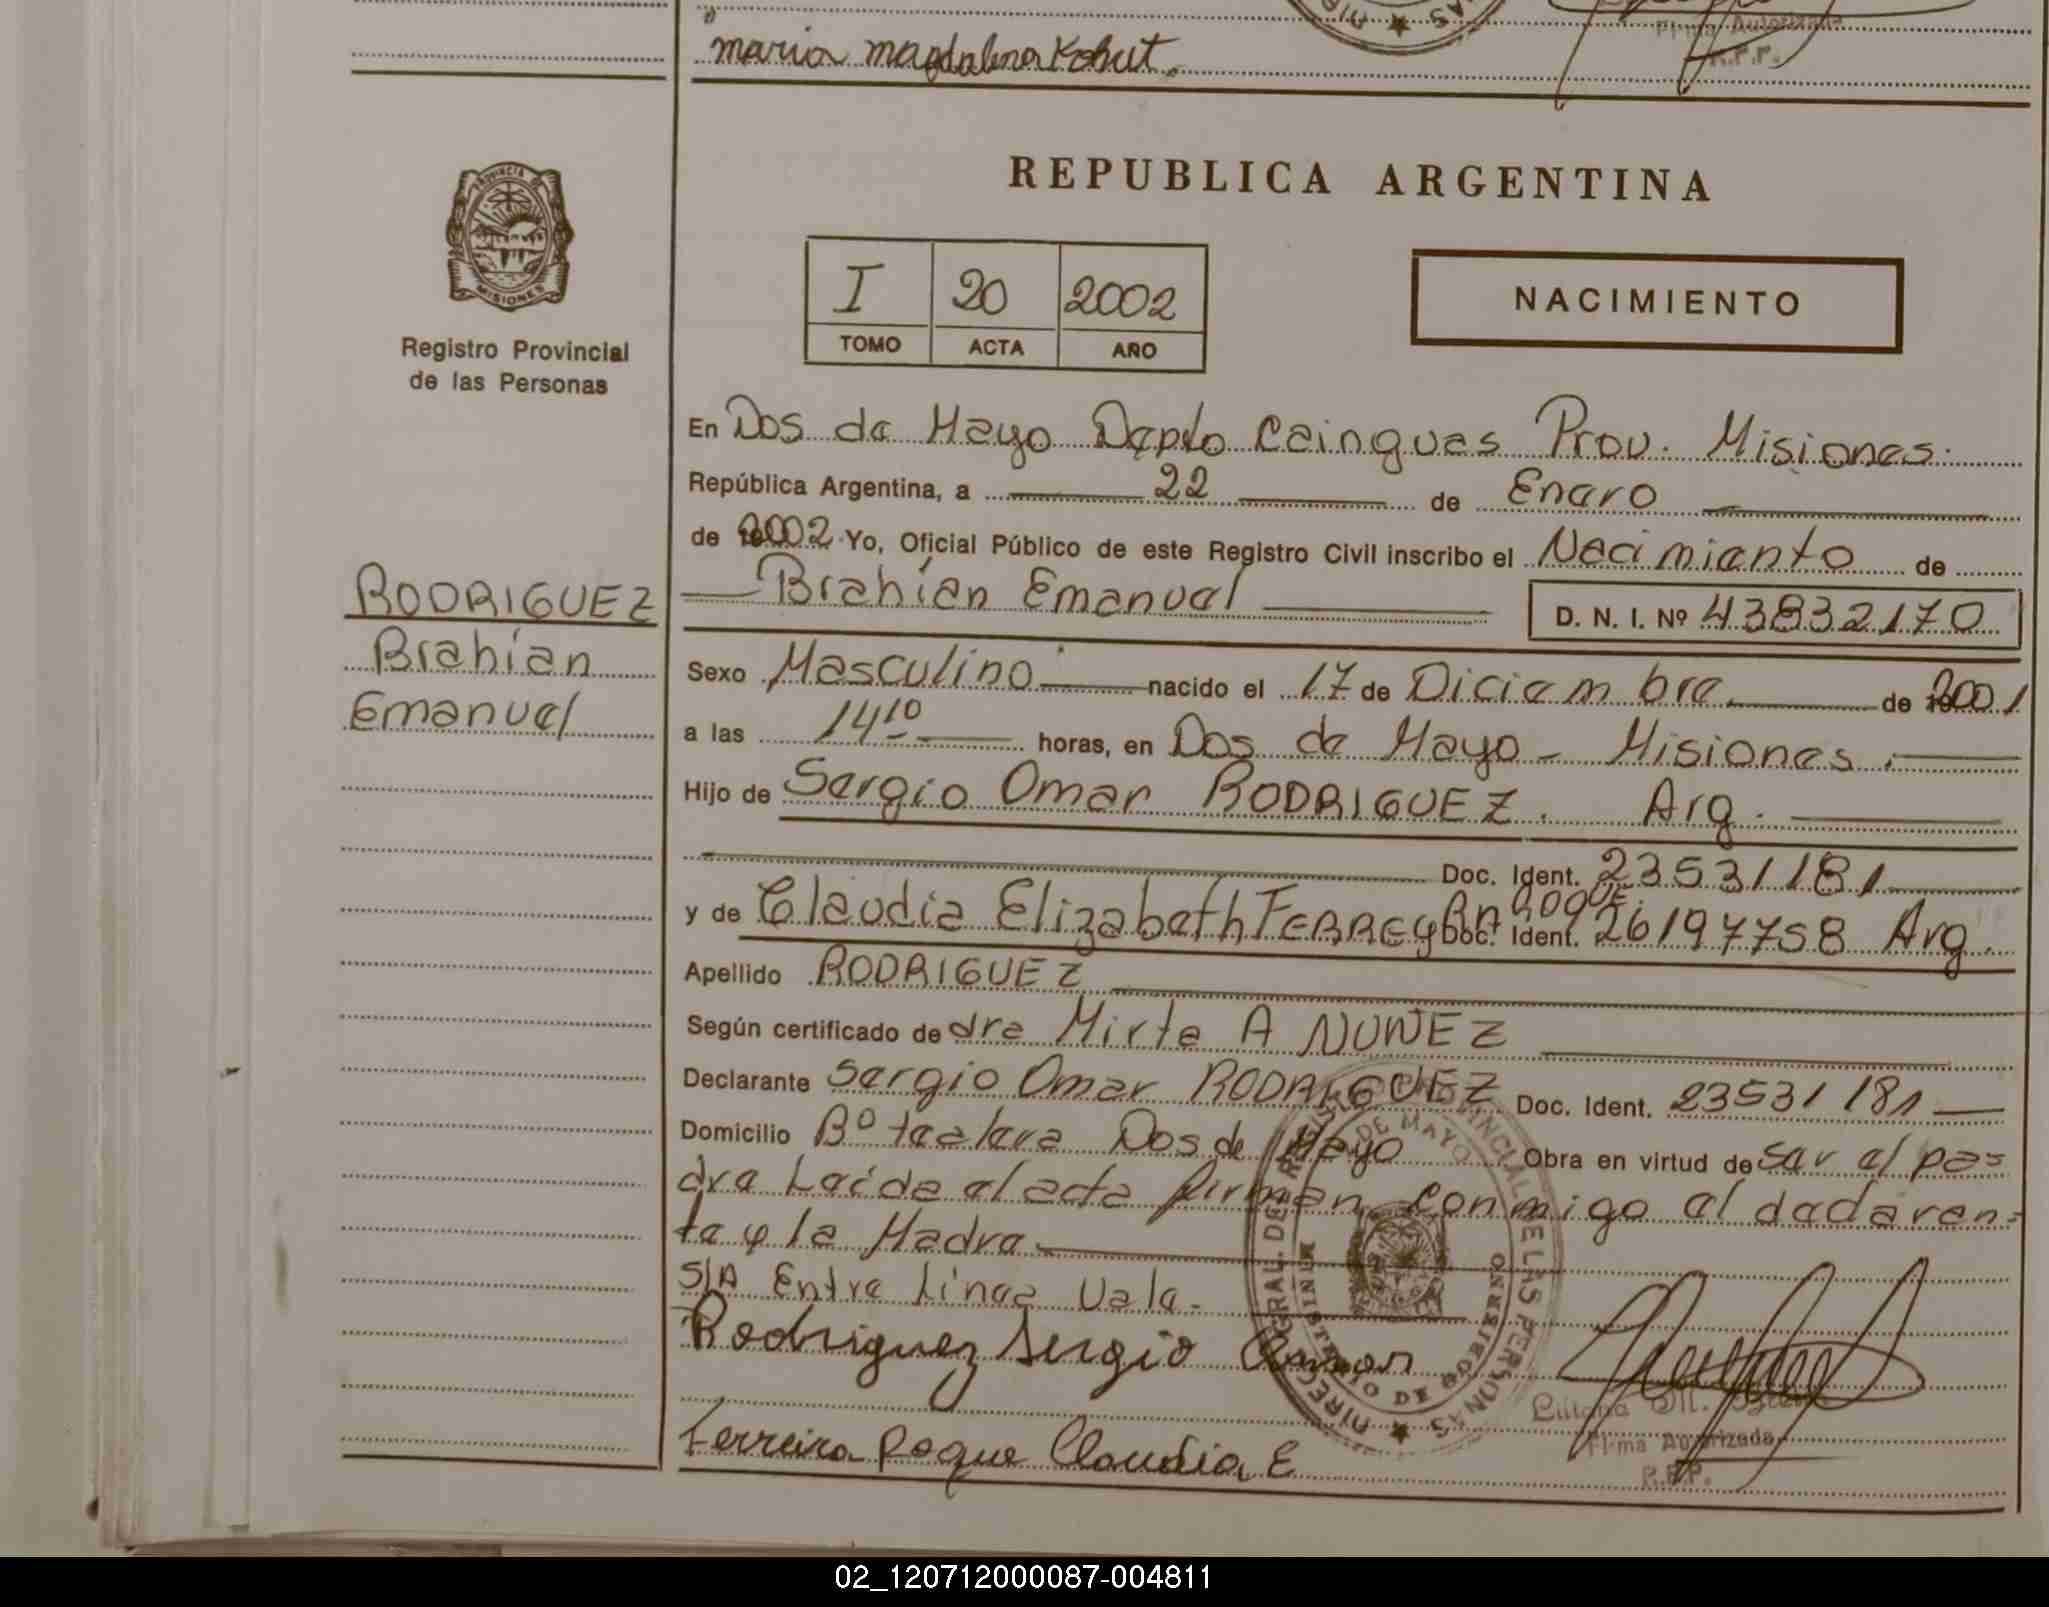 maria magdalena Kohut.
Firma Autorizada
R.P.P.
PROVINCIA DE
MISIONES
Registro Provincial
de las Personas
REPUBLICA ARGENTINA
I 20 2002
TOMO ACTA AÑO
NACIMIENTO
En Dos de Mayo Depto Cainguas Prov. Misiones.
República Argentina, a 22 de Enero
de 2002 Yo, Oficial Público de este Registro Civil inscribo el Nacimiento de
Brahían Emanuel D. N. I. Nº 43832170
RODRIGUEZ
Brahían
Emanuel
Sexo Masculino nacido el 17 de Diciembre de 2001
a las 14 10 horas, en Dos de Mayo - Misiones.
Hijo de Sergio Omar RODRIGUEZ. Arg.
Doc. Ident. 23531181
y de Claudia Elizabeth FERREYRA ROQUE. Doc. Ident. 26197758 Arg.
Apellido RODRIGUEZ
Según certificado de dra Mirta A NUÑEZ
Declarante Sergio Omar RODRIGUEZ Doc. Ident. 23531181
Domicilio Bº tealera Dos de Mayo Obra en virtud de ser el pa=
dre Leída el acta firman conmigo el declaren=
te y la Madre
S/A Entre línea Vale.
Rodriguez Sergio Omar
Ferreira Roque Claudia E
DIRECCION GENERAL DEL REGISTRO PROVINCIAL DE LAS PERSONAS
DOS DE MAYO
MINISTERIO DE GOBIERNO
Liliana M.
Firma Autorizada
R.P.P.
02_120712000087-004811